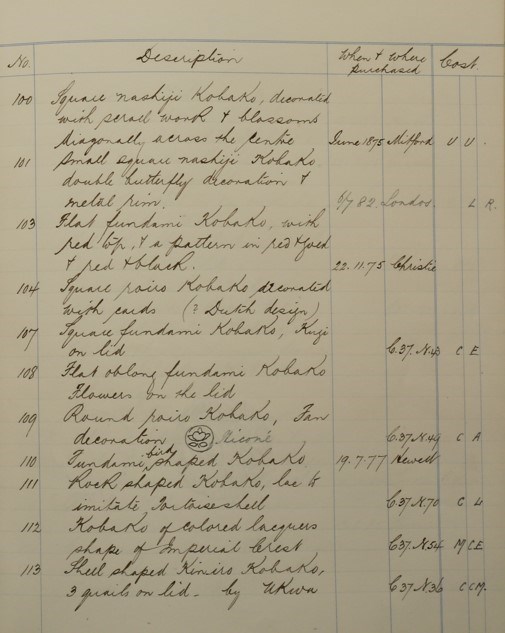 No. Description When & Where purchased Cost.
100 Square nashiji Kobako, decorated
with scroll work & blossoms
diagonally across the centre June 1875 Mitford U U.
101 Small square nashiji Kobako
double butterfly decoration &
metal rim. 82 Londos. L R.
103 Flat fundami Kobako, with
red top, & a pattern in red & gold
& red & black. 22.11.75 Christie
104 Square roiro Kobako decorated
with cards (? Dutch design)
107 Square fundami Kobako, Kuji
on lid C.37.N.43 C E
108 Flat oblong fundami Kobako
Flowers on the lid
109 Round roiro Kobako, Fan
decoration C.37.N.49 C A
110 Fundami bird shaped Kobako 19.7.77 Hewett
111 Rock shaped Kobako, lac to
imitate Tortoiseshell C.37.N.70 C L
112 Kobako of colored lacquers
shape of Imperial Crest C.37.N.54 M C E
113 Shell shaped Kiniro Kobako,
3 quails on lid - by Ukwa C.37.N.36 C C M.